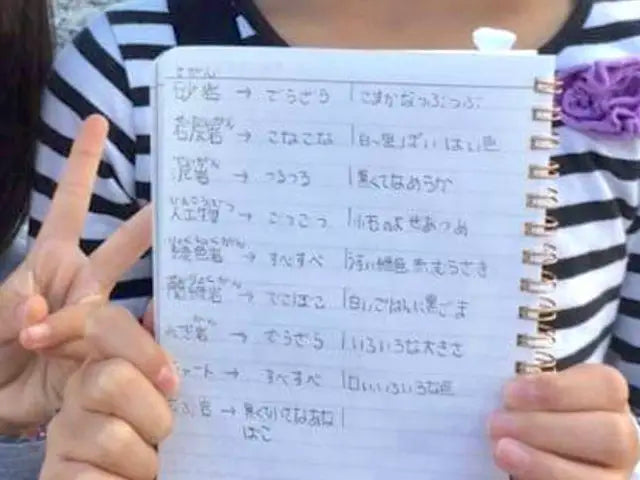 さがん
砂岩 → ざらざら | こまかなつぶつぶ
石灰岩 → こなこな | 白～黒っぽい はい色
泥岩 → つるつる | 黒くてなめらか
じんこうぶつ
人工物 → ごつごつ | 小石のよせあつめ
りょくしょくがん
緑色岩 → すべすべ | うすい緑色 赤むらさき
りょくがん
緑岩 → でこぼこ | 白いごはんに黒ごま
がん
れき岩 → ざらざら | いろいろな大きさ
チャート → すべすべ | いろいろな色
岩 → 黒くて あな
ぼこ